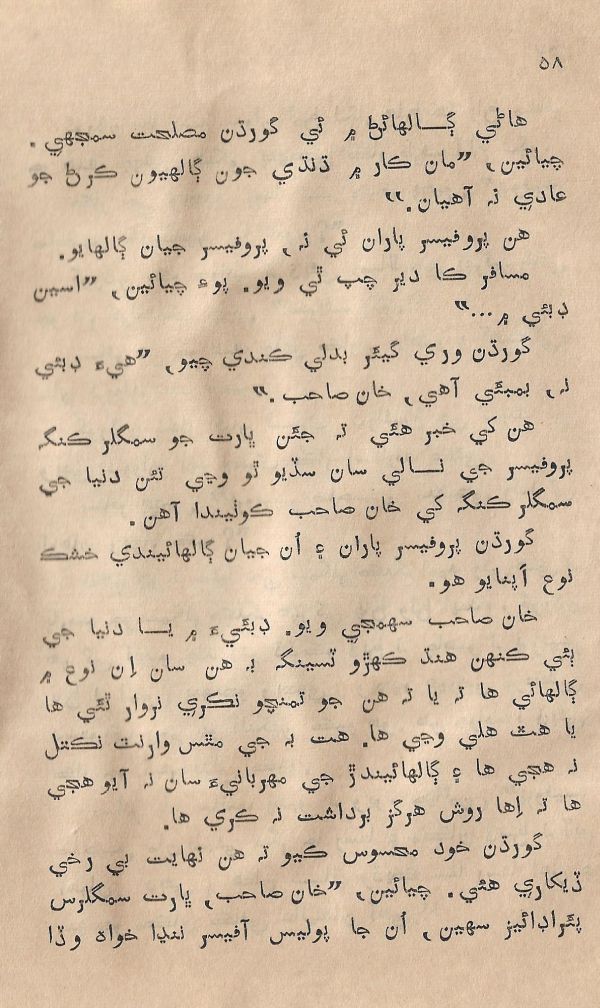 ٥٨
هاڻي ڳــالهائڻ ۾ ئي گورڌن مصلحت سمجهي.
چيائين، ”مان ڪار ۾ ڌنڌي جون ڳالهيون ڪرڻ جو
عادي نہ آهيان.“
هن پروفيسر پاران ئي نہ، پروفيسر جيان ڳالهايو.
مسافر ڪا دير چپ ٿي ويو. پوءِ چيائين، ”اسين
دبئي ۾...“
گورڌن وري گيئر بدلي ڪندي چيو، ”هيءَ دبئي
نہ، بمبئي آهي، خان صاحب.“
هن کي خبر هئي تہ جئن ڀارت جو سمگلر ڪنگ
پروفيسر جي نــالي سان سڏيو ٿو وڃي تئن دنيا جي
سمگلر ڪنگ کي خان صاحب ڪوٺيندا آهن.
گورڌن پروفيسر پاران ۽ اُن جيان ڳالهائيندي خشڪ
نوع اَپنايو هو.
خان صاحب سهمجي ويو. دبئيءَ ۾ يــا دنيا جي
ٻئي ڪنهن هنڌ ڪهڙو ٽسينگ بہ هن سان اِن نوع ۾
ڳالهائي ها تہ يا تہ هن جو تمنچو نڪري نروار ٿئي ها
يا هٿ هلي وڃي ها. هت بہ جي مٿس وارنٽ نڪتل
نہ هجي ها ۽ ڳالهائيندڙ جي مهربانيءَ سان نہ آيو هجي
ها تہ اِها روش هرگز برداشت نہ ڪري ها.
گورڌن خود محسوس ڪيو تہ هن نهايت بي رخي
ڏيکاري هئي. چيائين، ”خان صاحب، ڀارت سمگلرس
پئراڊائيز سهين، اُن جا پوليس آفيسر ننڍا خواہ وڏا